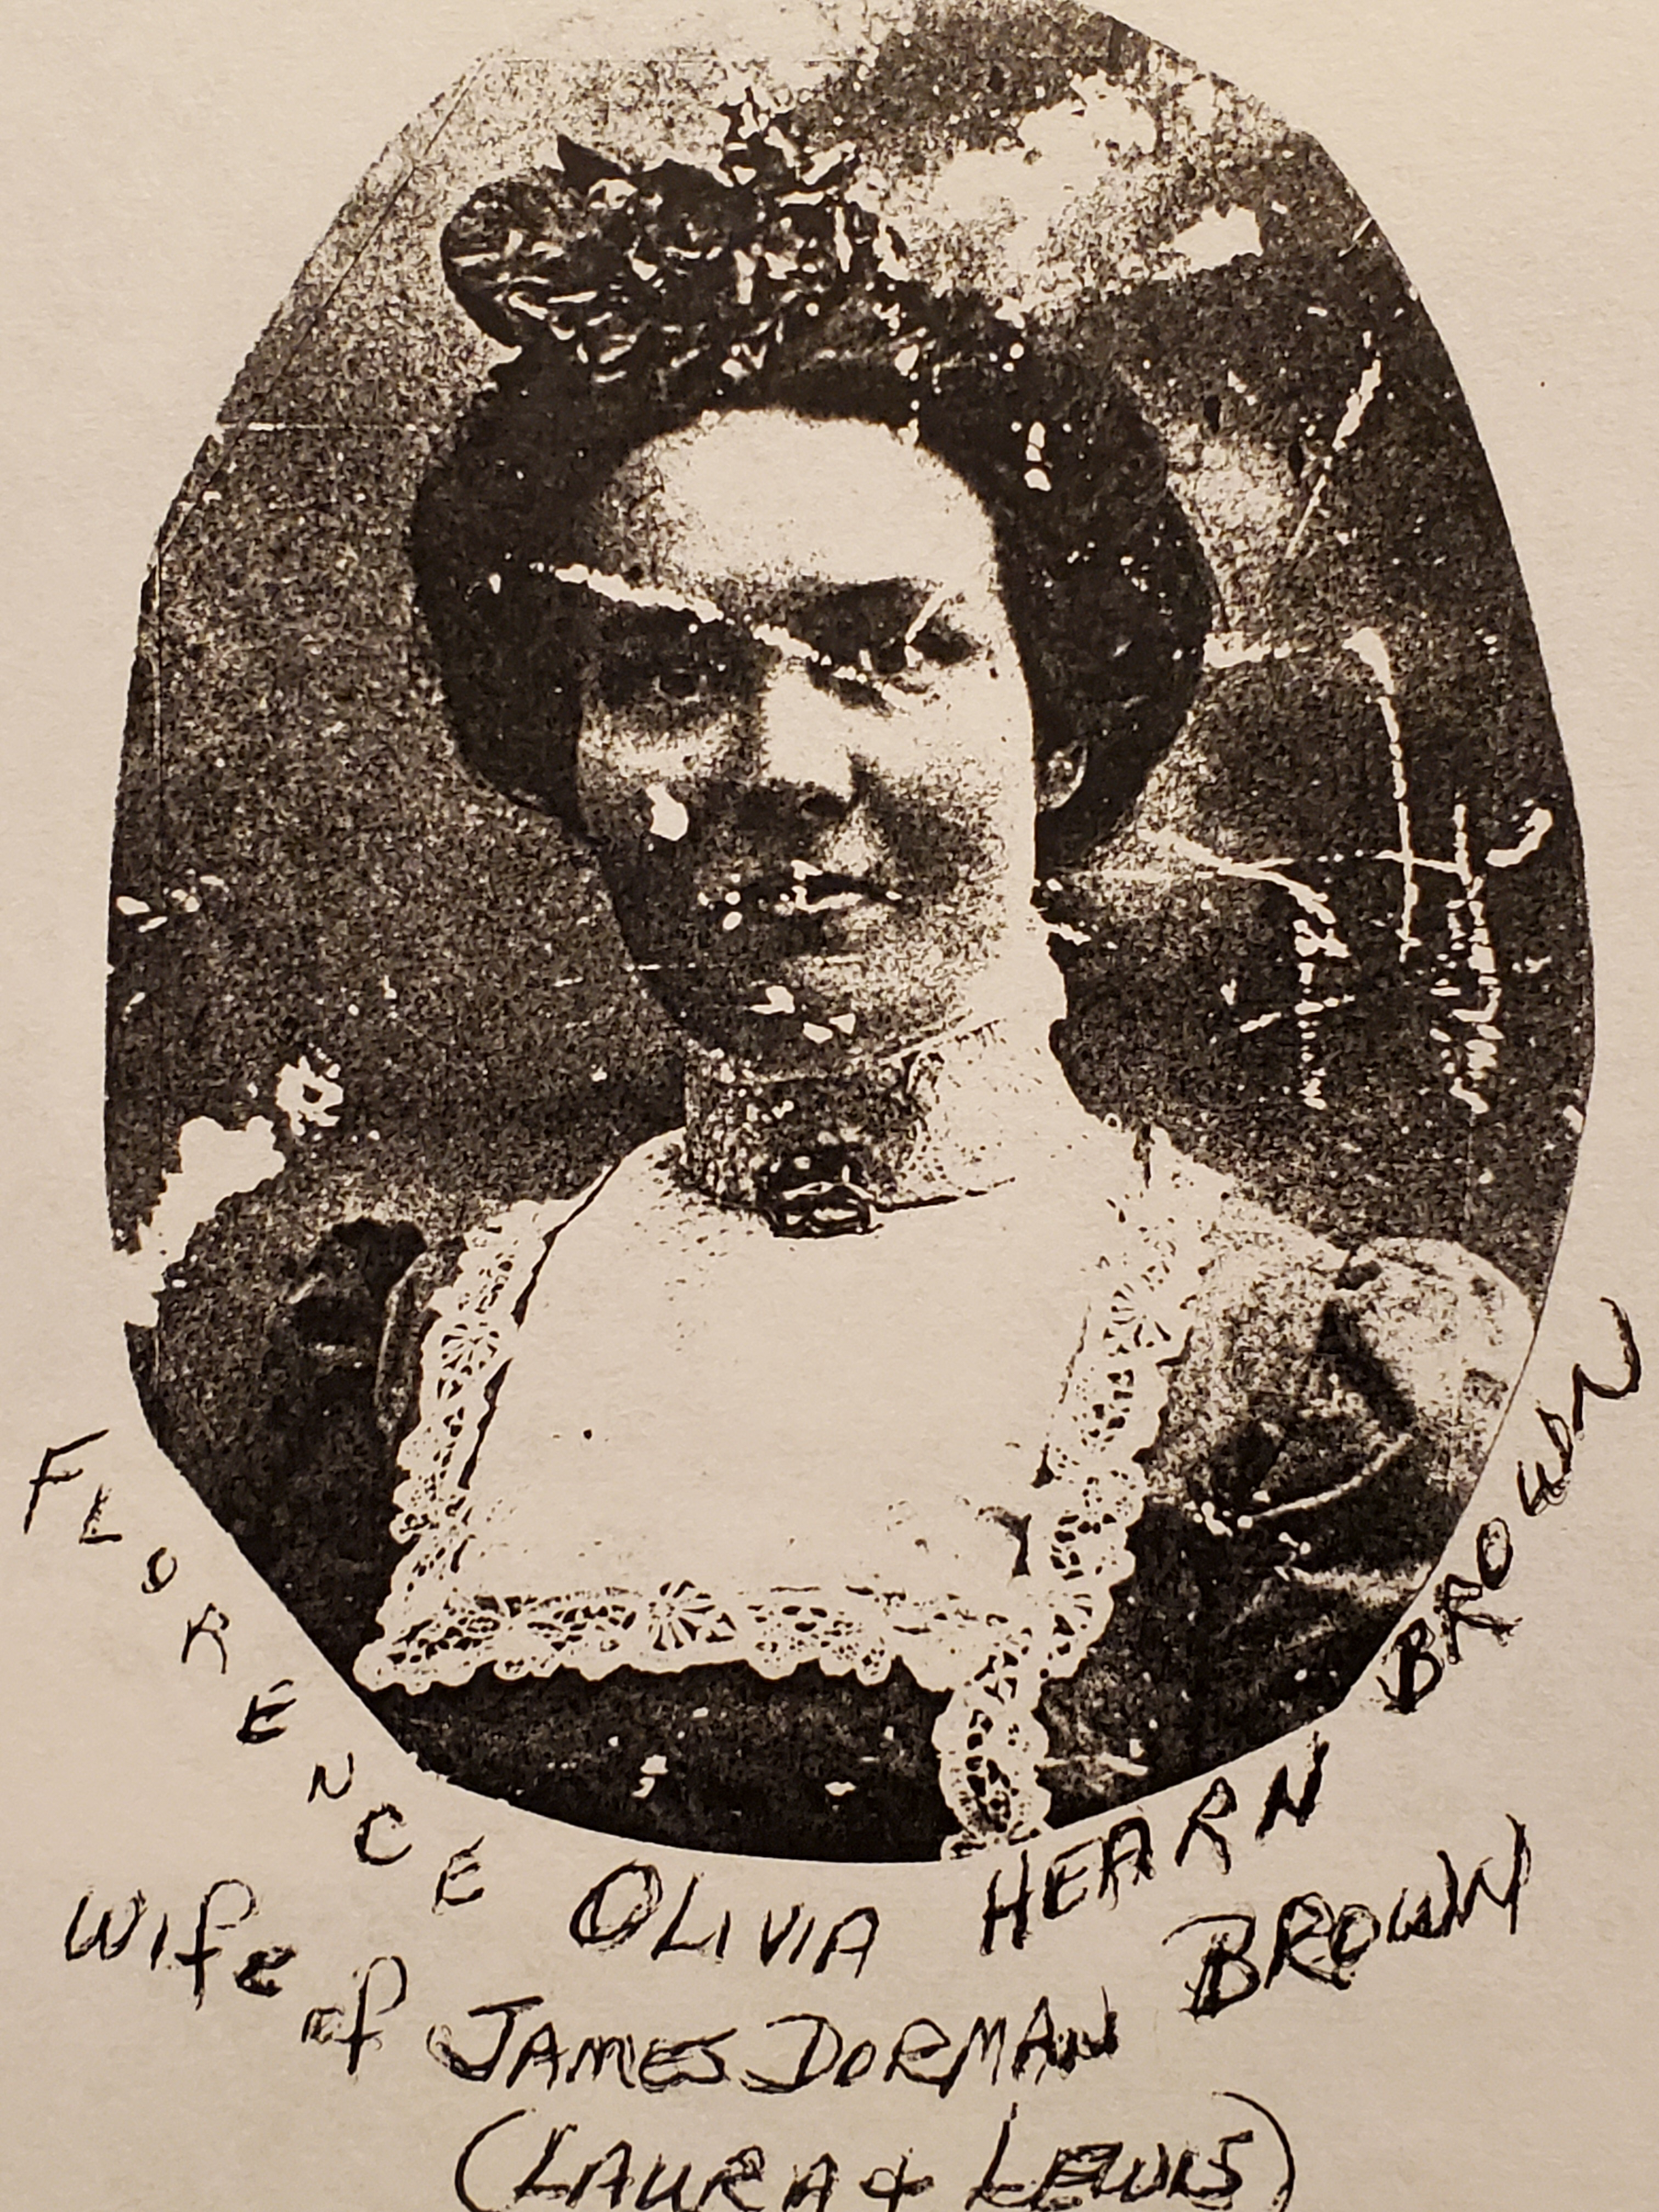 FLORENCE OLIVIA HEARN BROWN
Wife of JAMES DORMAN BROWN
(LAURA & LEWIS)